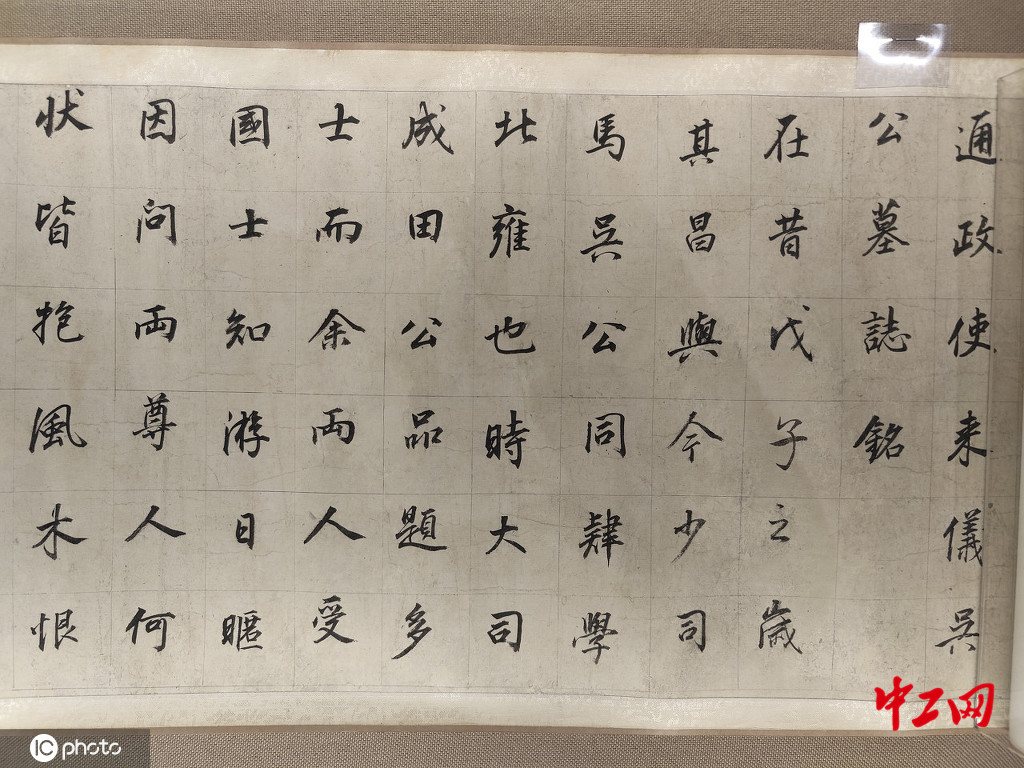 通政使来儀吳
公墓誌銘
在昔戊子之歲
其昌與今少司
馬吳公同肄學
北雍也時大司
成田公品題多
士而余兩人受
國士知游日暱
因問兩尊人何
状皆抱風木恨
中工网
IC photo